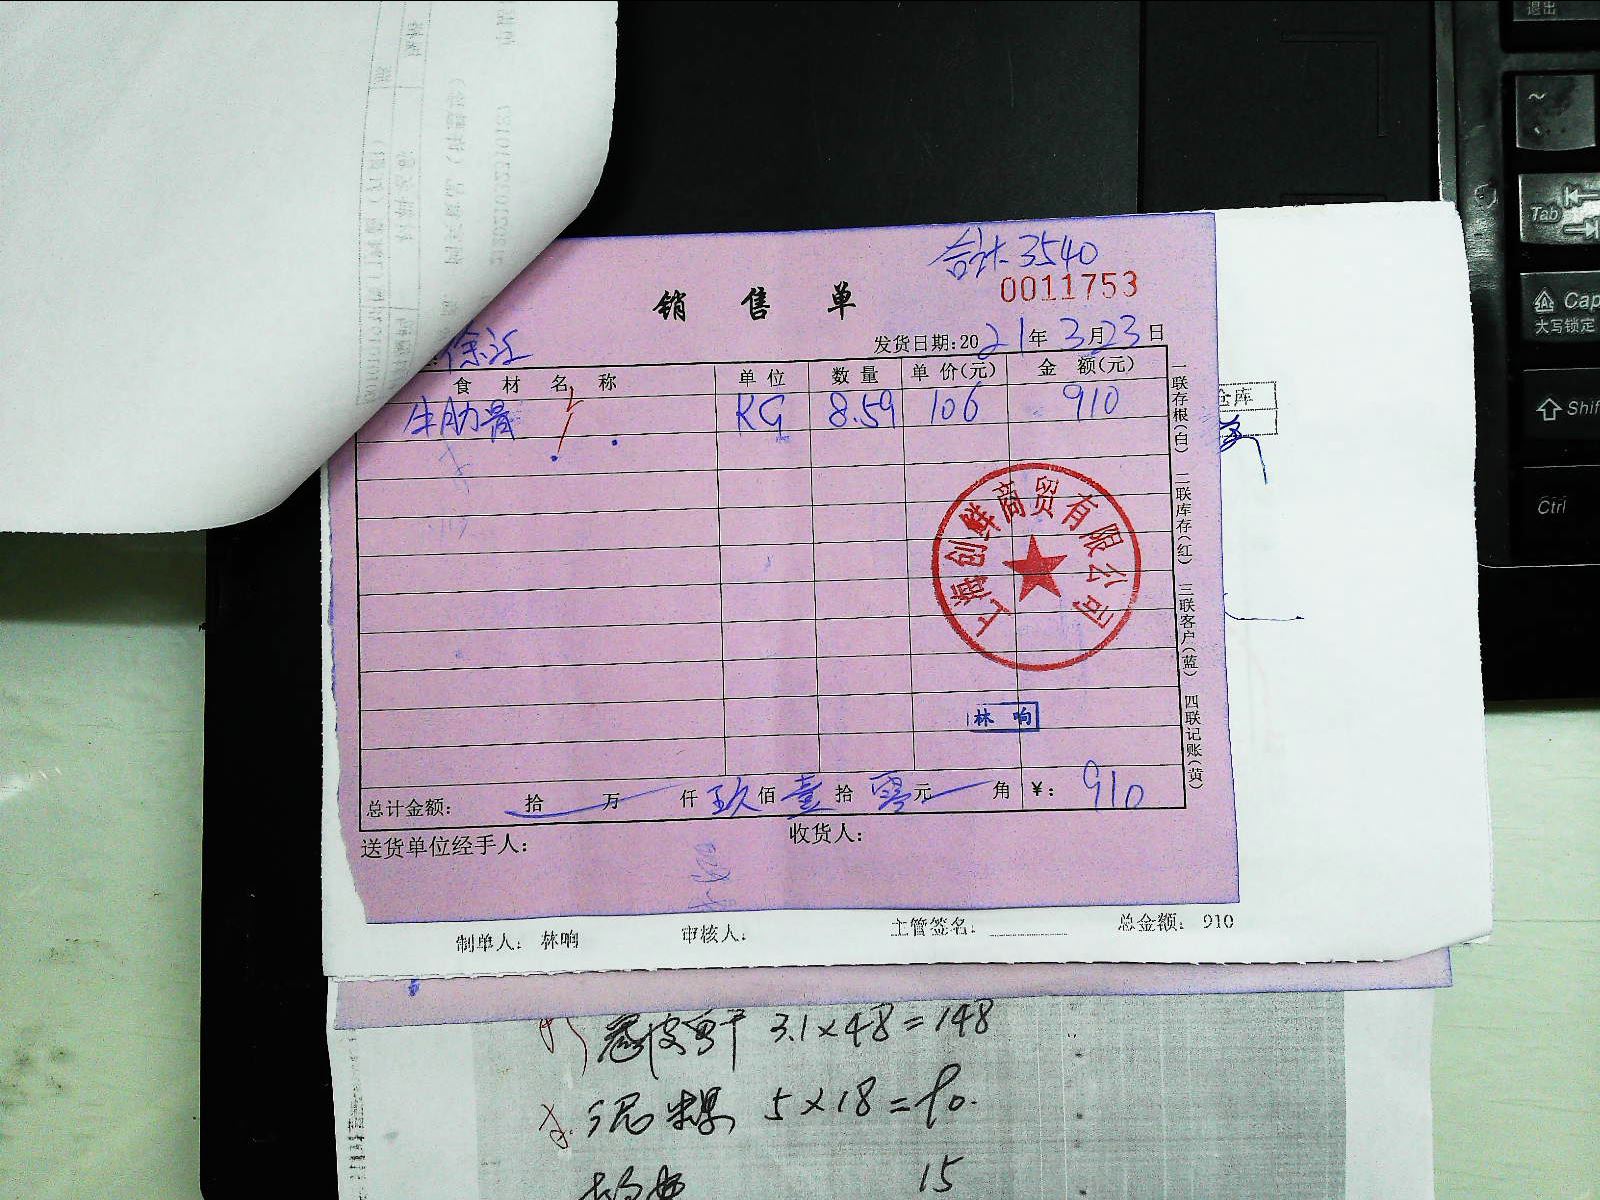 合计 3540
0011753
销售单
徐汇
发货日期:2021年3月23日
食材名称 单位 数量 单价(元) 金额(元)
牛肋骨 KG 8.59 106 910
一联存根(白) 二联库存(红) 三联客户(蓝) 四联记账(黄)
仓库
上海创鲜商贸有限公司
林响
总计金额: 拾 万 仟 玖佰 壹拾 零元 角 ¥: 910
送货单位经手人: 收货人:
制单人: 林响 审核人: 主管签名: 总金额: 910
3.1×48=148
5×18=90.
15
~
Tab
Cap
大写锁定
Shif
Ctrl
退出